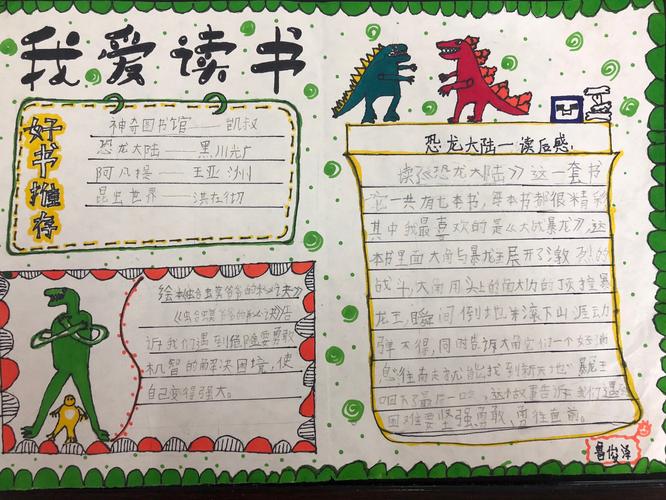 我爱读书
好书推存
神奇图书馆——凯叔
恐龙大陆——黑川光广
阿凡提——王亚洲
昆虫世界——洪在彻
恐龙大陆一读后感.
读了《恐龙大陆》这一套书
它一共有七本书,每本书都很精彩
其中我最喜欢的是《大战暴龙》,这
本书里面大角与暴龙王展开了激烈的
战斗,大角用头上的角大力的顶撞暴
龙王,瞬间倒地来滚下山涯动
弹不得,同时告诉大角它们一个好消
息往南走就能找到新天地"暴龙王
咽下了最后一口 这个故事告诉我们遇到
困难要坚强勇敢、勇往直前。
绘本《独台虫莫爷爷的秘诀》
告
诉我们遇到危险要勇敢
机智的解决困境,使
自己变得强大。
鲁俊泽